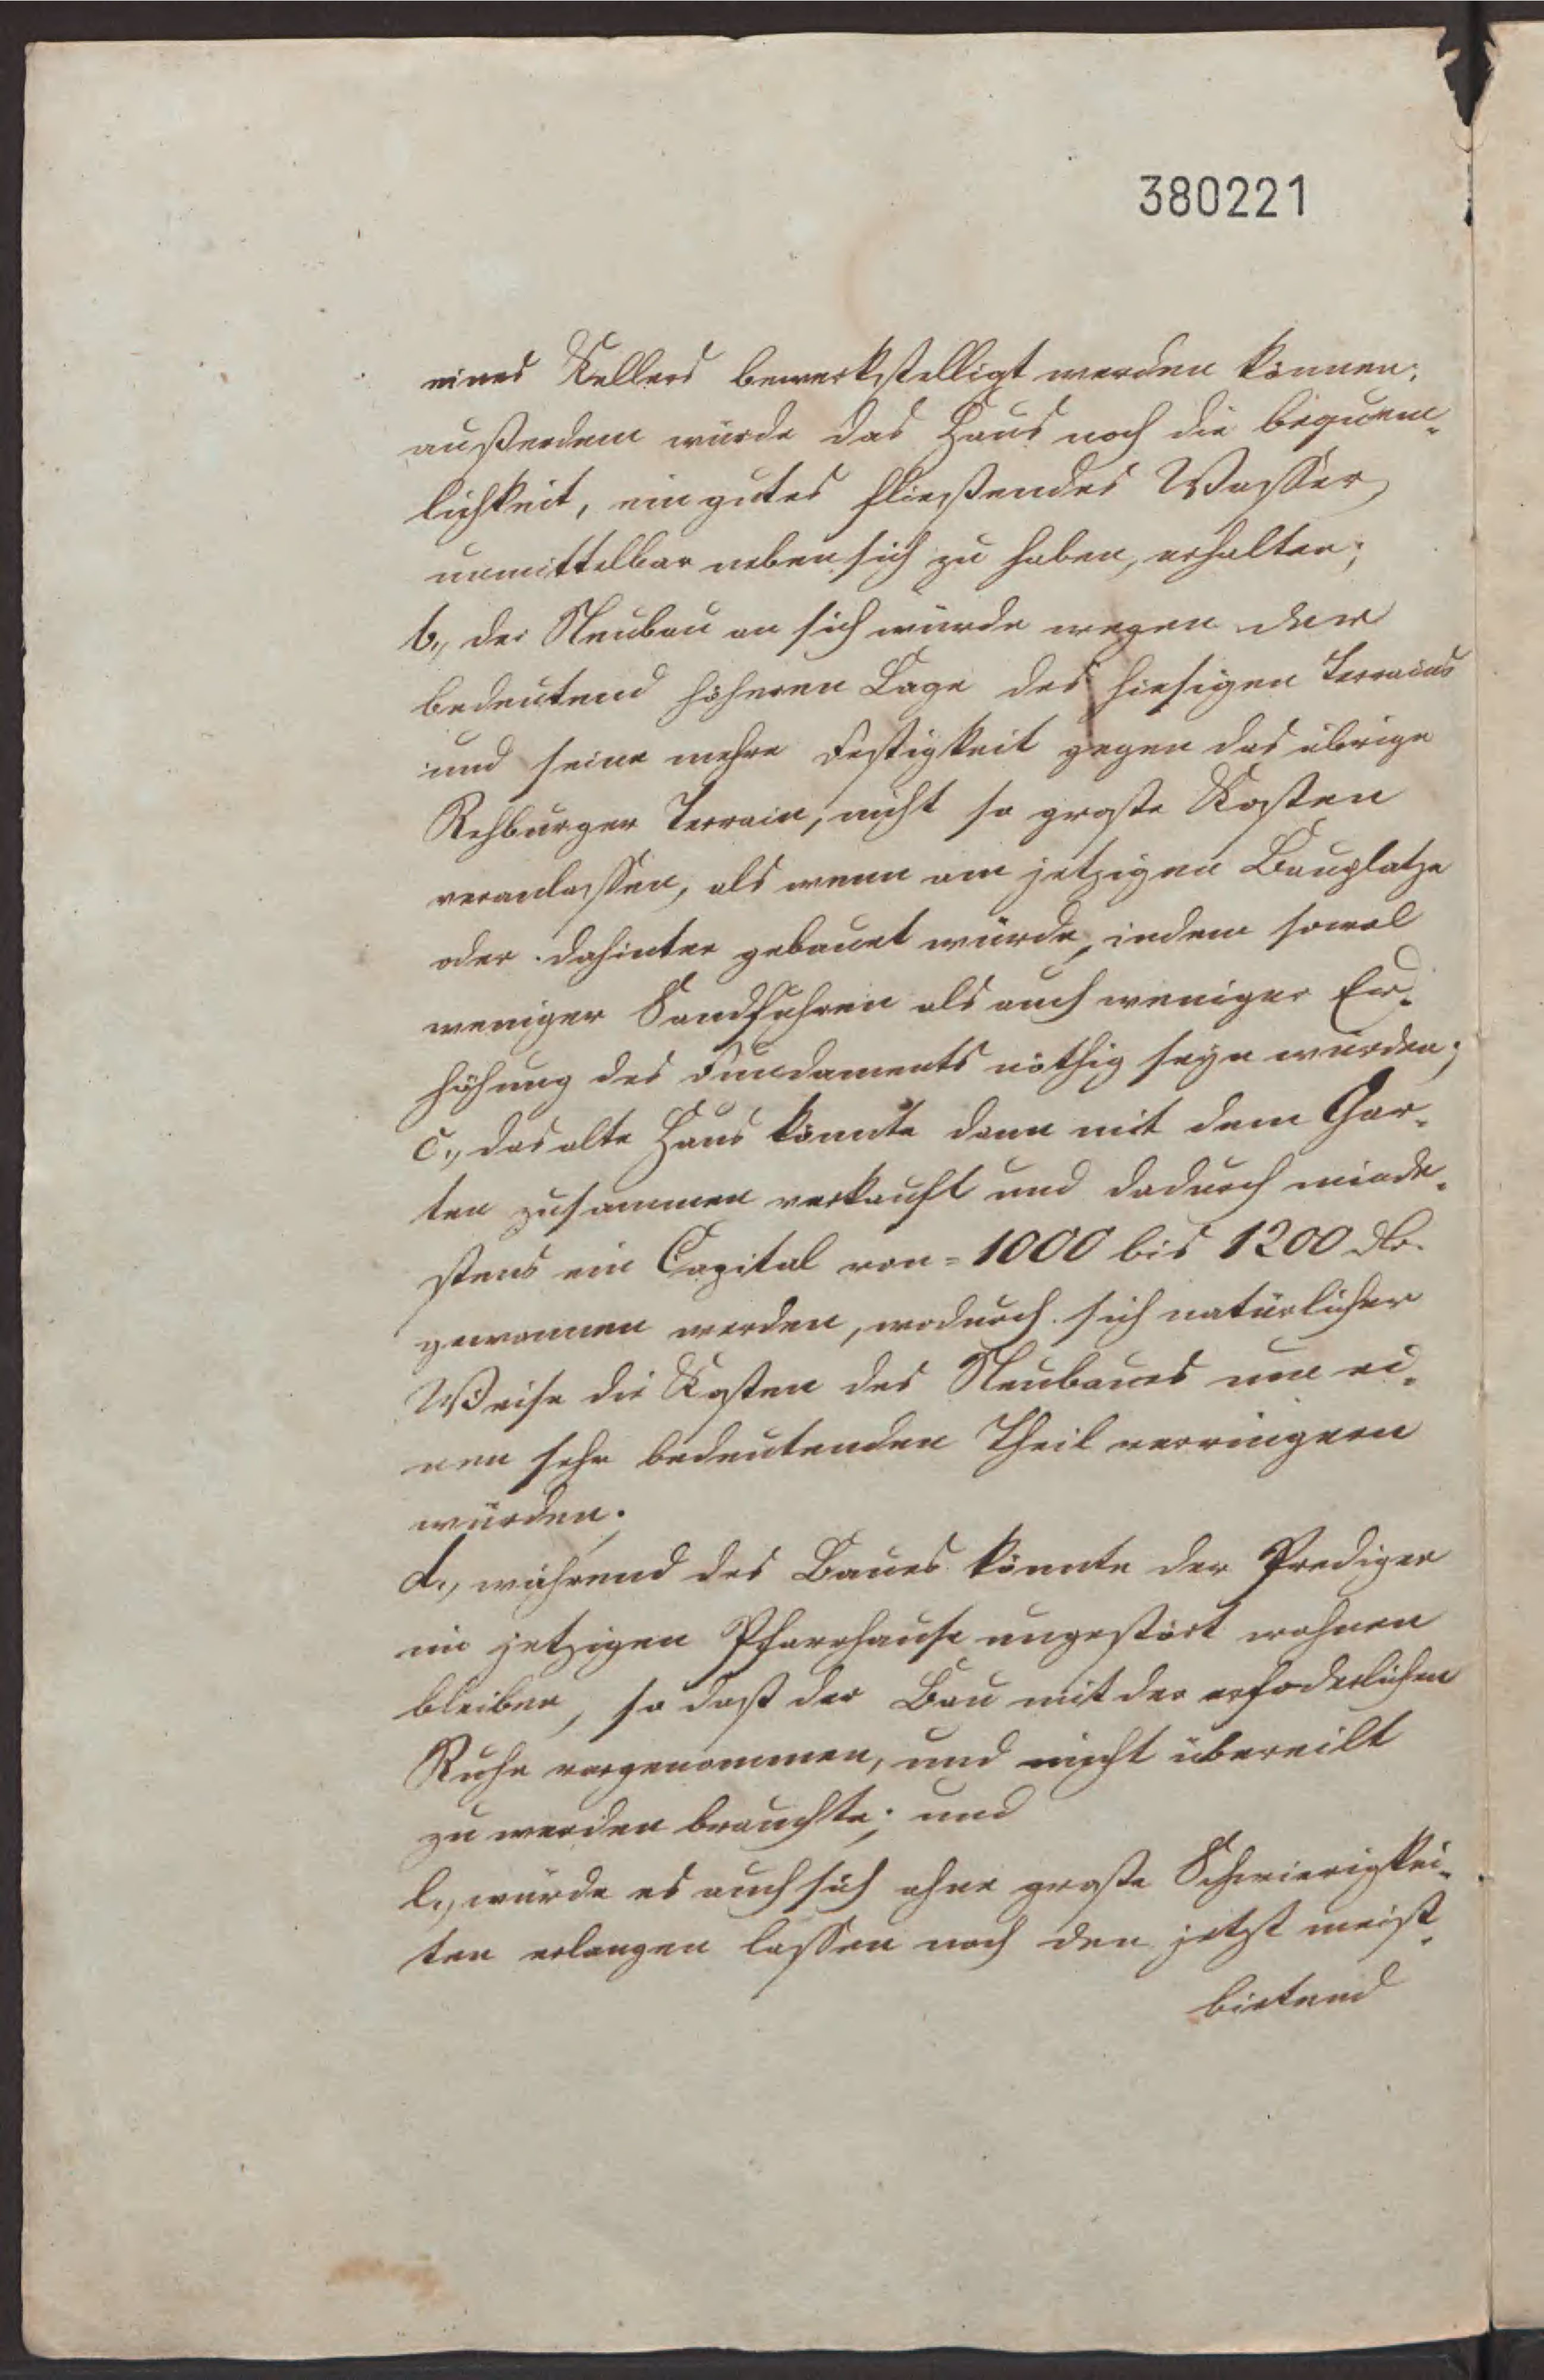 380221
eines Kellers bewerkstelligt werden können;
außerdem würde das Haus noch die bequem-
lichkeit, ein gutes fließendes Wasser
unmittelbar neben sich zu haben, erhalten;
b., der Neubau an sich würde wegen der
bedeutend höheren Lage des hiesigen Terrains
und seine mehre Festigkeit gegen das übrige
Rehburger Terrain, nicht so große Kosten
veranlassen, als wenn am jetzigen Bauplatze
oder dahinter gebauet würde, indem sowol
weniger Sandfuhren als auch weniger Er-
höhung des Fundaments nöthig seyn würden;
c., das alte Haus könnte dann mit dem Gar-
ten zusammen verkauft und dadurch minde-
stens ein Capital von = 1000 bis 1200
gewonnen werden, wodurch sich natürlicher
Weise die Kosten des Neubaues um ei-
nen sehr bedeutenden Theil verringern
würden.
d., während des Baues könnte der Prediger
im jetzigen Pfarrhause ungestört wohnen
bleiben, so daß der Bau mit der erfoderlichen
Ruhe vorgenommen, und nicht übereilt
zu werden brauchte; und
e., würde es auch sich ohne große Schwierigkei-
ten erlangen lassen noch den jetzt meist-
bietend